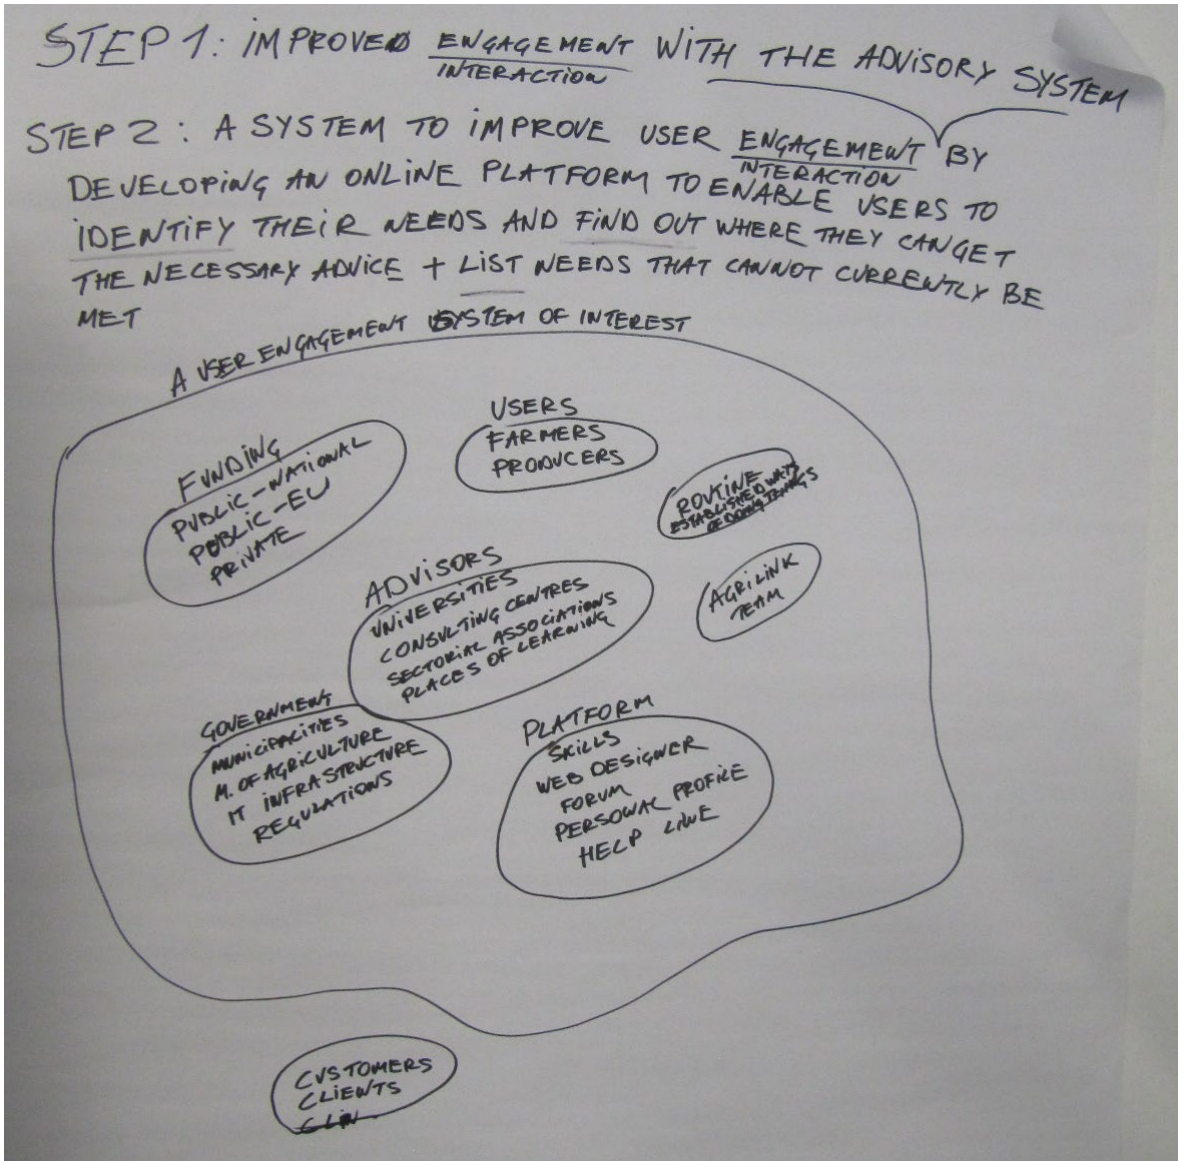 STEP 1: IMPROVED ENGAGEMENT WITH THE ADVISORY SYSTEM
INTERACTION
STEP 2: A SYSTEM TO IMPROVE USER ENGAGEMENT BY
INTERACTION
DEVELOPING AN ONLINE PLATFORM TO ENABLE USERS TO
IDENTIFY THEIR NEEDS AND FIND OUT WHERE THEY CAN GET
THE NECESSARY ADVICE + LIST NEEDS THAT CANNOT CURRENTLY BE
MET
A USER ENGAGEMENT SYSTEM OF INTEREST
USERS
FARMERS
PRODUCERS
FUNDING
PUBLIC-NATIONAL
PUBLIC-EU
PRIVATE
ROUTINE
ESTABLISHED WAYS
OF DOING THINGS
ADVISORS
UNIVERSITIES
CONSULTING CENTRES
SECTORIAL ASSOCIATIONS
PLACES OF LEARNING
AGRILINK
TEAM
GOVERNMENT
MUNICIPALITIES
M. OF AGRICULTURE
IT INFRASTRUCTURE
REGULATIONS
PLATFORM
SKILLS
WEB DESIGNER
FORUM
PERSONAL PROFILE
HELP LINE
CUSTOMERS
CLIENTS